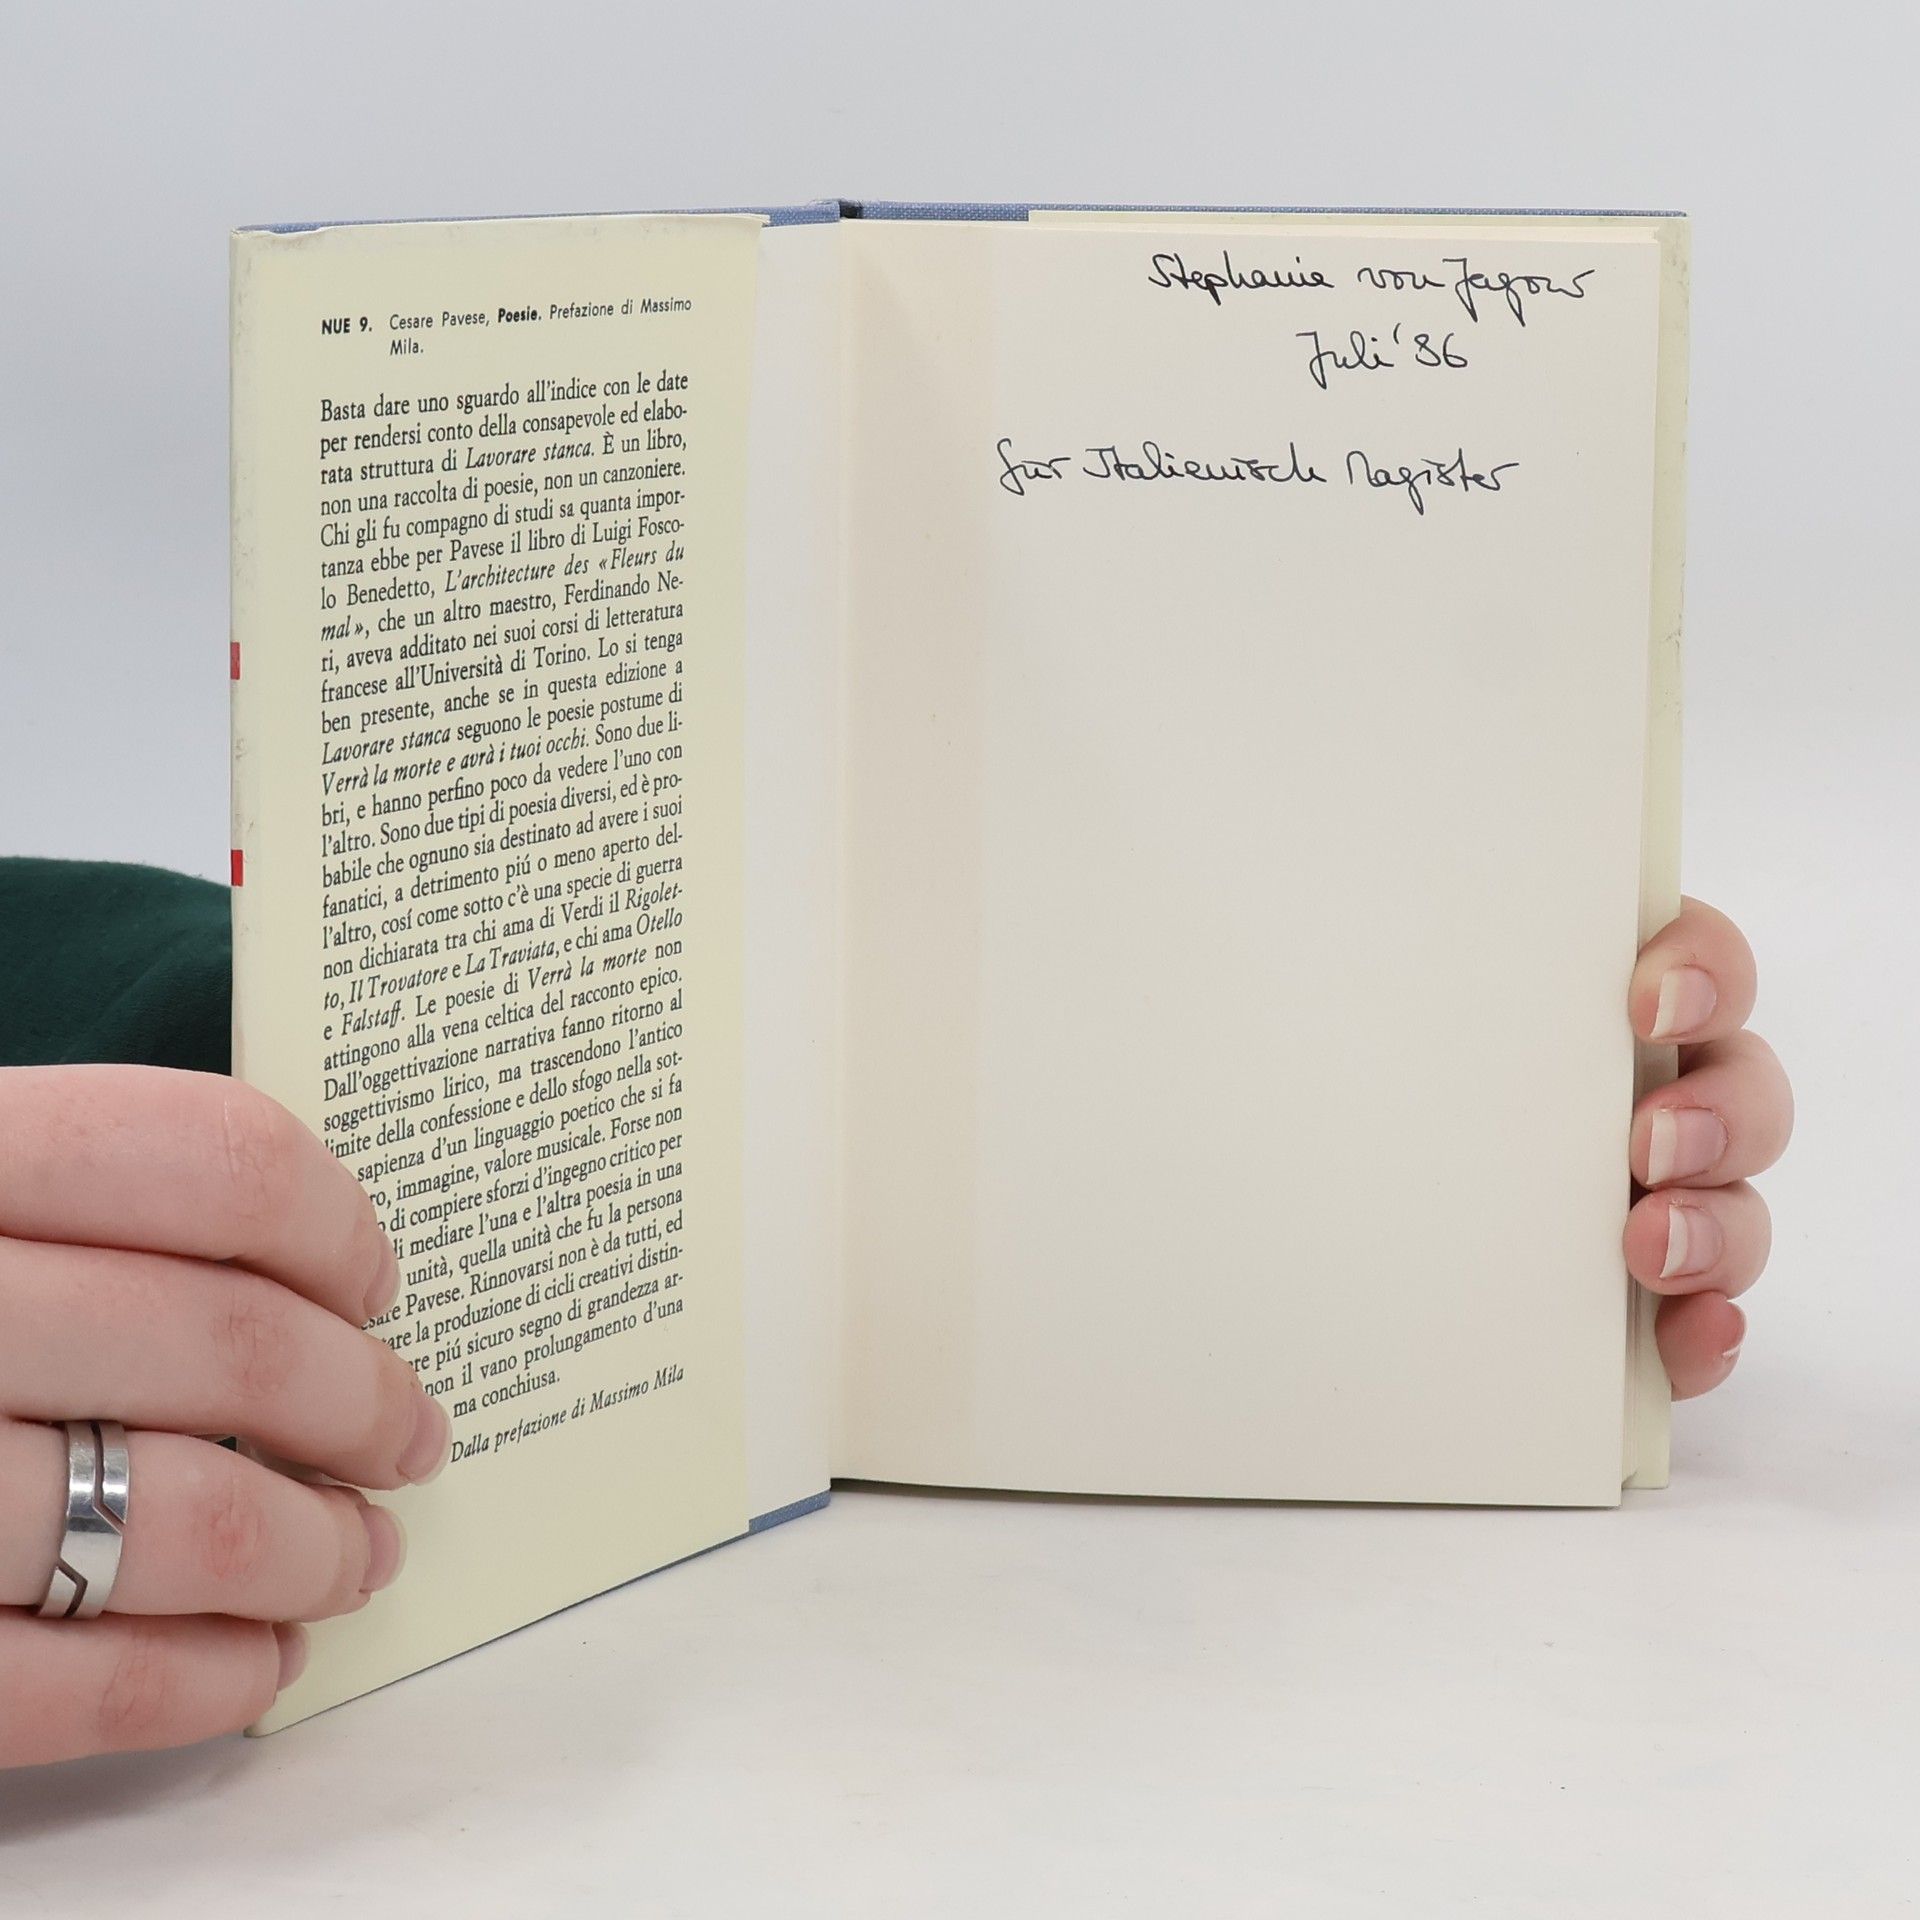 NUE 9. Cesare Pavese, Poesie. Prefazione di Massimo
Mila.
Basta dare uno sguardo all'indice con le date
per rendersi conto della consapevole ed elabo-
rata struttura di Lavorare stanca. È un libro,
non una raccolta di poesie, non un canzoniere.
Chi gli fu compagno di studi sa quanta impor-
tanza ebbe per Pavese il libro di Luigi Fosco-
lo Benedetto, L'architecture des «Fleurs du
mal», che un altro maestro, Ferdinando Ne-
ri, aveva additato nei suoi corsi di letteratura
francese all'Università di Torino. Lo si tenga
ben presente, anche se in questa edizione a
Lavorare stanca seguono le poesie postume di
Verrà la morte e avrà i tuoi occhi. Sono due li-
bri, e hanno perfino poco da vedere l'uno con
l'altro. Sono due tipi di poesia diversi, ed è pro-
babile che ognuno sia destinato ad avere i suoi
fanatici, a detrimento piú o meno aperto del-
l'altro, cosí come sotto c'è una specie di guerra
non dichiarata tra chi ama di Verdi il Rigolet-
to, Il Trovatore e La Traviata, e chi ama Otello
e Falstaff. Le poesie di Verrà la morte non
attingono alla vena celtica del racconto epico.
Dall'oggettivazione narrativa fanno ritorno al
soggettivismo lirico, ma trascendono l'antico
limite della confessione e dello sfogo nella sot-
sapienza d'un linguaggio poetico che si fa
ro, immagine, valore musicale. Forse non
di compiere sforzi d'ingegno critico per
di mediare l'una e l'altra poesia in una
unità, quella unità che fu la persona
sare Pavese. Rinnovarsi non è da tutti, ed
are la produzione di cicli creativi distin-
re piú sicuro segno di grandezza ar-
non il vano prolungamento d'una
ma conchiusa.
Dalla prefazione di Massimo Mila
Stephanie von Jagow
Juli '86
für Italienisch Magister